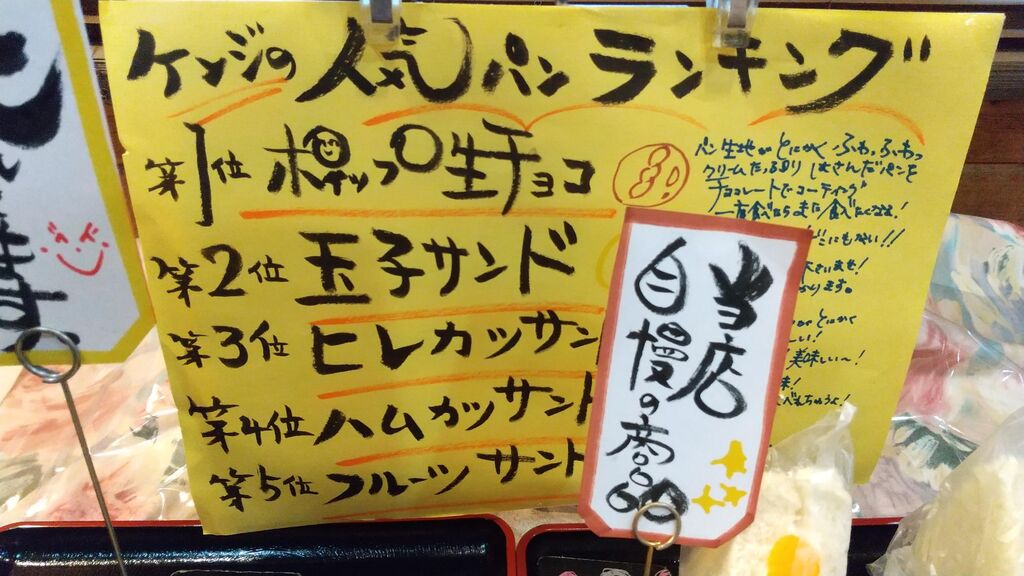 ケンジの人気パンランキング
第1位 ホイップ生チョコ
パン生地がとにかくふわっふわっ
クリームたっぷりはさんだパンを
チョコレートでコーティング
一度食べたらまた食べたくなる!
第2位 玉子サンド
第3位 ヒレカツサン
第4位 ハムカツサンド
第5位 フルーツサンド
にもない!!
ります。
とにかく
美味しい〜!
当店
自慢の商品